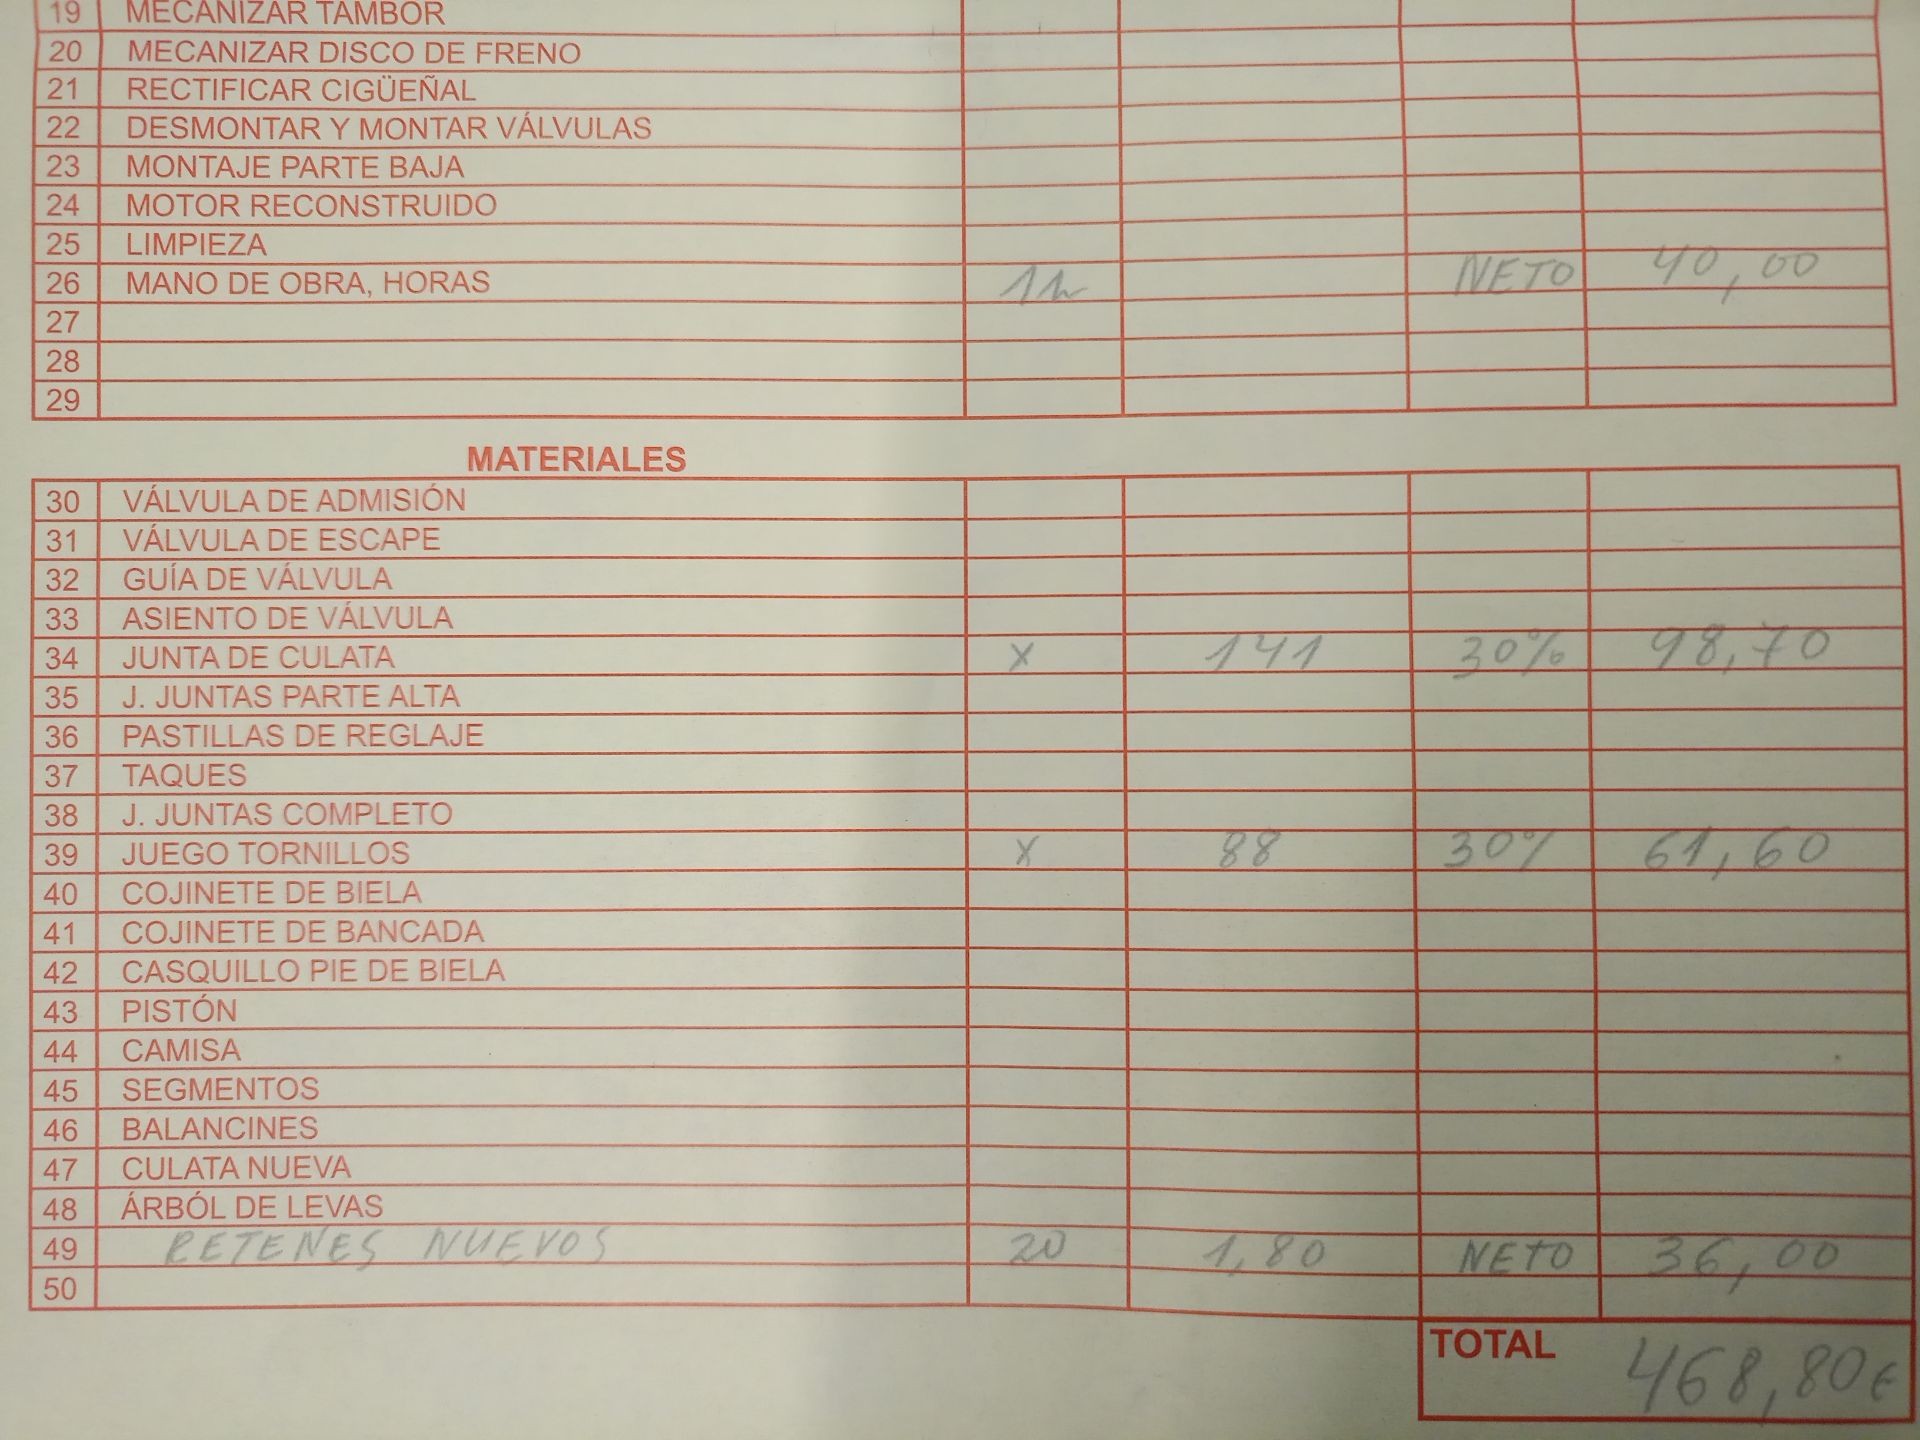 19 MECANIZAR TAMBOR
20 MECANIZAR DISCO DE FRENO
21 RECTIFICAR CIGÜEÑAL
22 DESMONTAR Y MONTAR VÁLVULAS
23 MONTAJE PARTE BAJA
24 MOTOR RECONSTRUIDO
25 LIMPIEZA
26 MANO DE OBRA, HORAS 1h NETO 40,00
27
28
29
MATERIALES
30 VÁLVULA DE ADMISIÓN
31 VÁLVULA DE ESCAPE
32 GUÍA DE VÁLVULA
33 ASIENTO DE VÁLVULA
34 JUNTA DE CULATA X 141 30% 98,70
35 J. JUNTAS PARTE ALTA
36 PASTILLAS DE REGLAJE
37 TAQUES
38 J. JUNTAS COMPLETO
39 JUEGO TORNILLOS X 88 30% 61,60
40 COJINETE DE BIELA
41 COJINETE DE BANCADA
42 CASQUILLO PIE DE BIELA
43 PISTÓN
44 CAMISA
45 SEGMENTOS
46 BALANCINES
47 CULATA NUEVA
48 ÁRBÓL DE LEVAS
49 RETENES NUEVOS 20 1,80 NETO 36,00
50
TOTAL 468,80€